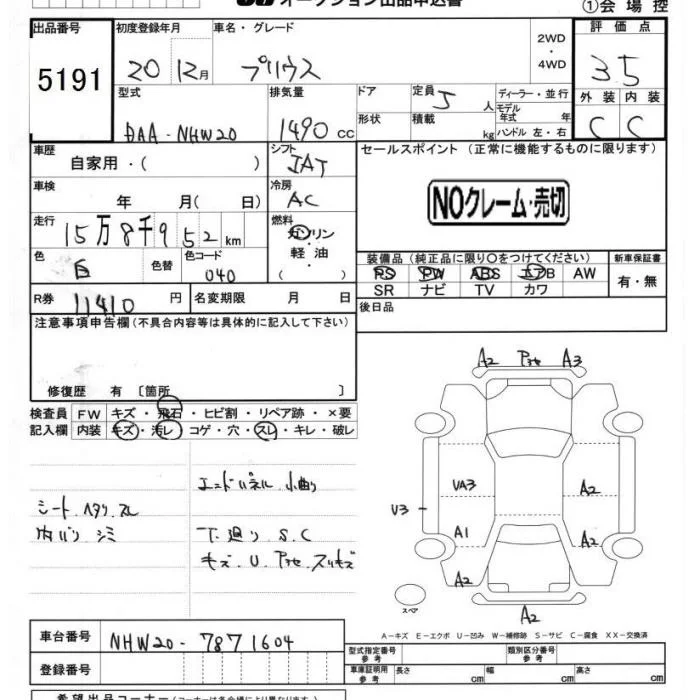 オークション出品申込書
①会場控
出品番号
5191
初度登録年月
20 12月
車名・グレード
プリウス
2WD
・
4WD
評価点
3.5
外装 内装
C C
型式
DAA-NHW20
排気量
1490 cc
ドア
形状
定員 5 人
積載 kg
ディーラー・並行
モデル年式 年
ハンドル 左・右
車歴
自家用・( )
シフト
IAT
セールスポイント (正常に機能するものに限ります)
NOクレーム・売切
車検
年 月( 日)
冷房
AC
走行
15万8千952km
燃料
ガソリン
・
軽油
・
( )
色
白
色替
色コード
040
装備品 (純正品に限り○をつけてください)
PS PW ABS エアB AW
SR ナビ TV カワ
新車保証書
有・無
R券 11410 円
名変期限 月 日
後日品
注意事項申告欄(不具合内容等は具体的に記入して下さい)
修復歴 有 〔箇所 〕
検査員 FW キズ・飛石・ヒビ割・リペア跡・×要
記入欄 内装 キズ・汚レ・コゲ・穴・スレ・キレ・破レ
エンドパネル 小曲り
シート ヘタリ スレ
内バリ シミ
下廻り S.C
キズ U スリキズ
A2 A3
VA3 A2
V3
A1 A2
A2
A2
スペア
A−キズ E−エクボ U−凹み W−補修跡 S−サビ C−腐食 XX−交換済
車台番号 NHW20-7871604
登録番号
型式指定番号 参考
類別区分番号 参考
車庫証明用 参考 長さ cm 幅 cm 高さ cm
希望出品コーナー(